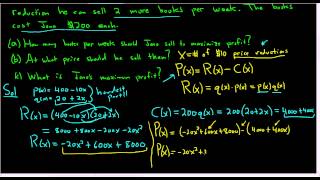 reduction he can sell 2 more books per week. The books
cost Jano $200 each.
(a) How many books per week should Jano sell to maximize profit?
(b) At what price should he sell them?
(c) What is Jano's maximum profit?
X = # of $10 price reductions
P(x) = R(x) - C(x)
R(x) = q(x)·p(x) = p(x)q(x)
Sol
p(x) = 400-10x
q(x) = 20+2x
hardest part!!
R(x) = (400-10x)(20+2x)
= 8000+800x-200x-20x²
R(x) = -20x²+600x+8000
C(x) = 200q(x) = 200(20+2x) = 4000+400x
P(x) = (-20x²+600x+8000) - (4000+400x)
P(x) = -20x²+